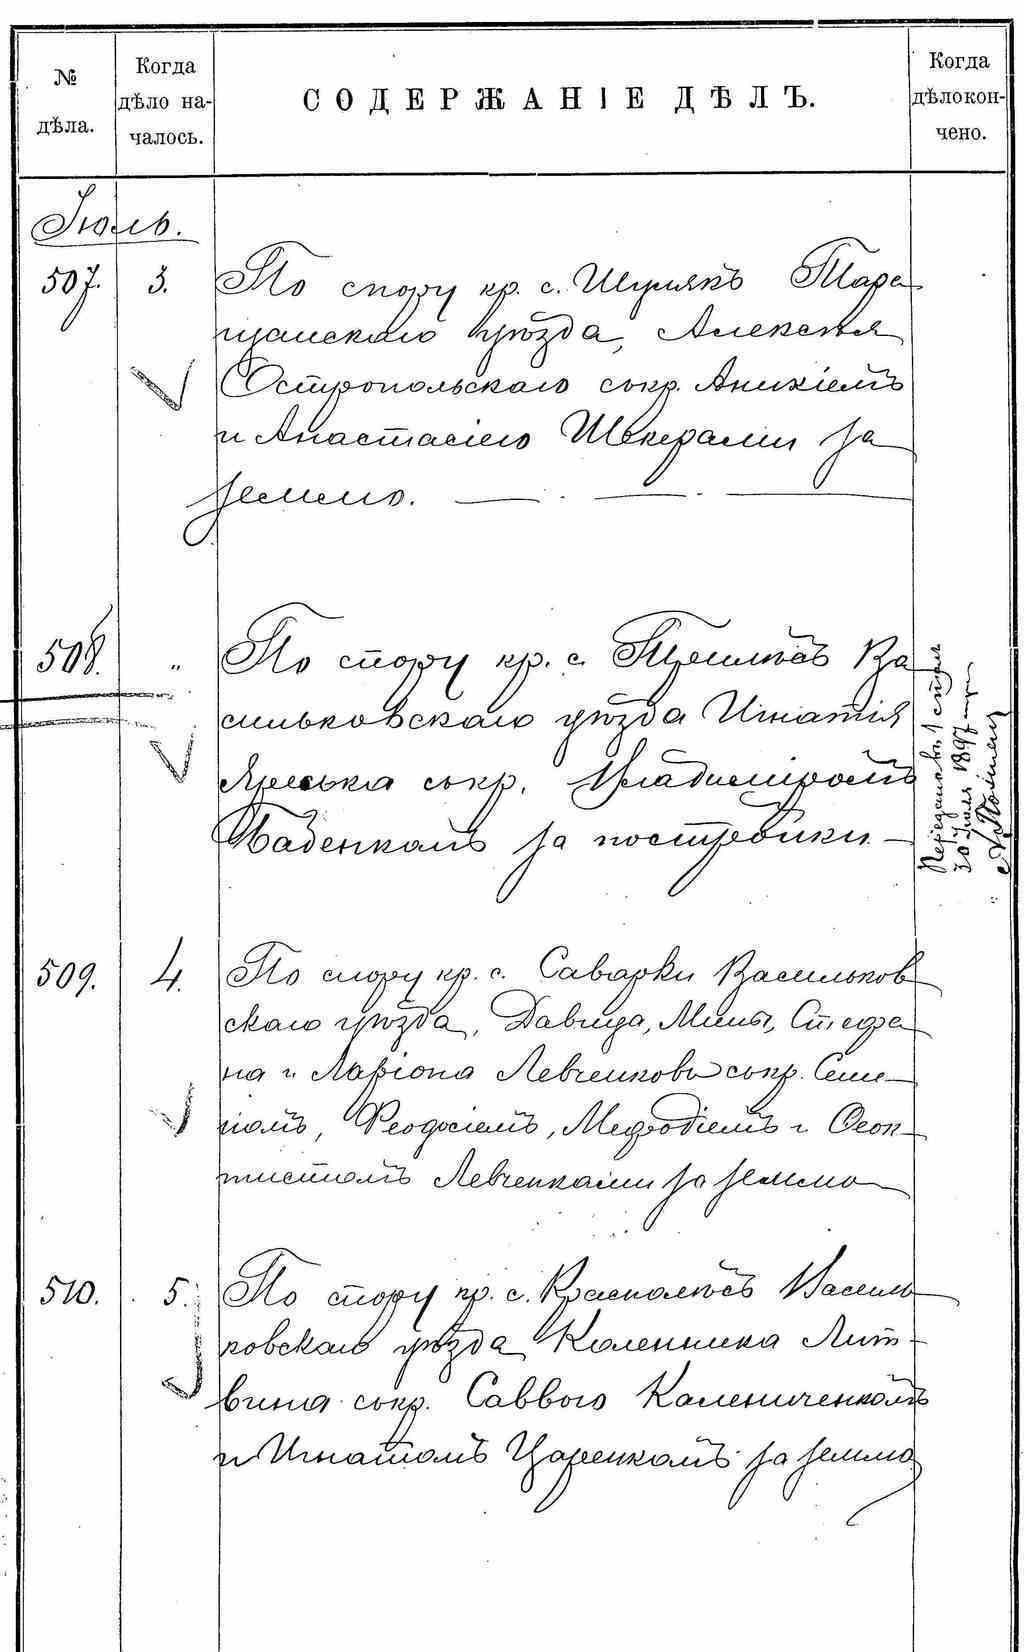 № дѣла.
Когда дѣло на-
чалось.
СОДЕРЖАНІЕ ДѢЛЪ.
Когда дѣло кон-
чено.
Іюль.
507. 3. По спору кр. с. Шулякъ Тара
щанскаго уѣзда, Алексѣя
Остропольскаго съ кр. Аникіемъ
и Анастасіею Шкерами за
землю.
508. " По спору кр. с. Ва
сильковскаго уѣзда Игнатія
съ кр. Владиміромъ
Бабенкомъ за постройки.
Передано въ 1 столъ
30 Іюля 1897 г.
509. 4. По спору кр. с. Саварки Васильков
скаго уѣзда, Давида, Мины, Стефа
на и Ларіона Левченковъ съ кр. Семе
номъ, Феодосіемъ, Мефодіемъ и Феок
тистомъ Левченками за землю
510. 5. По спору кр. с. Василь
ковскаго уѣзда Каленника Лит-
вина съ кр. Саввою Калениченкомъ
и Игнатомъ Царенкомъ за землю